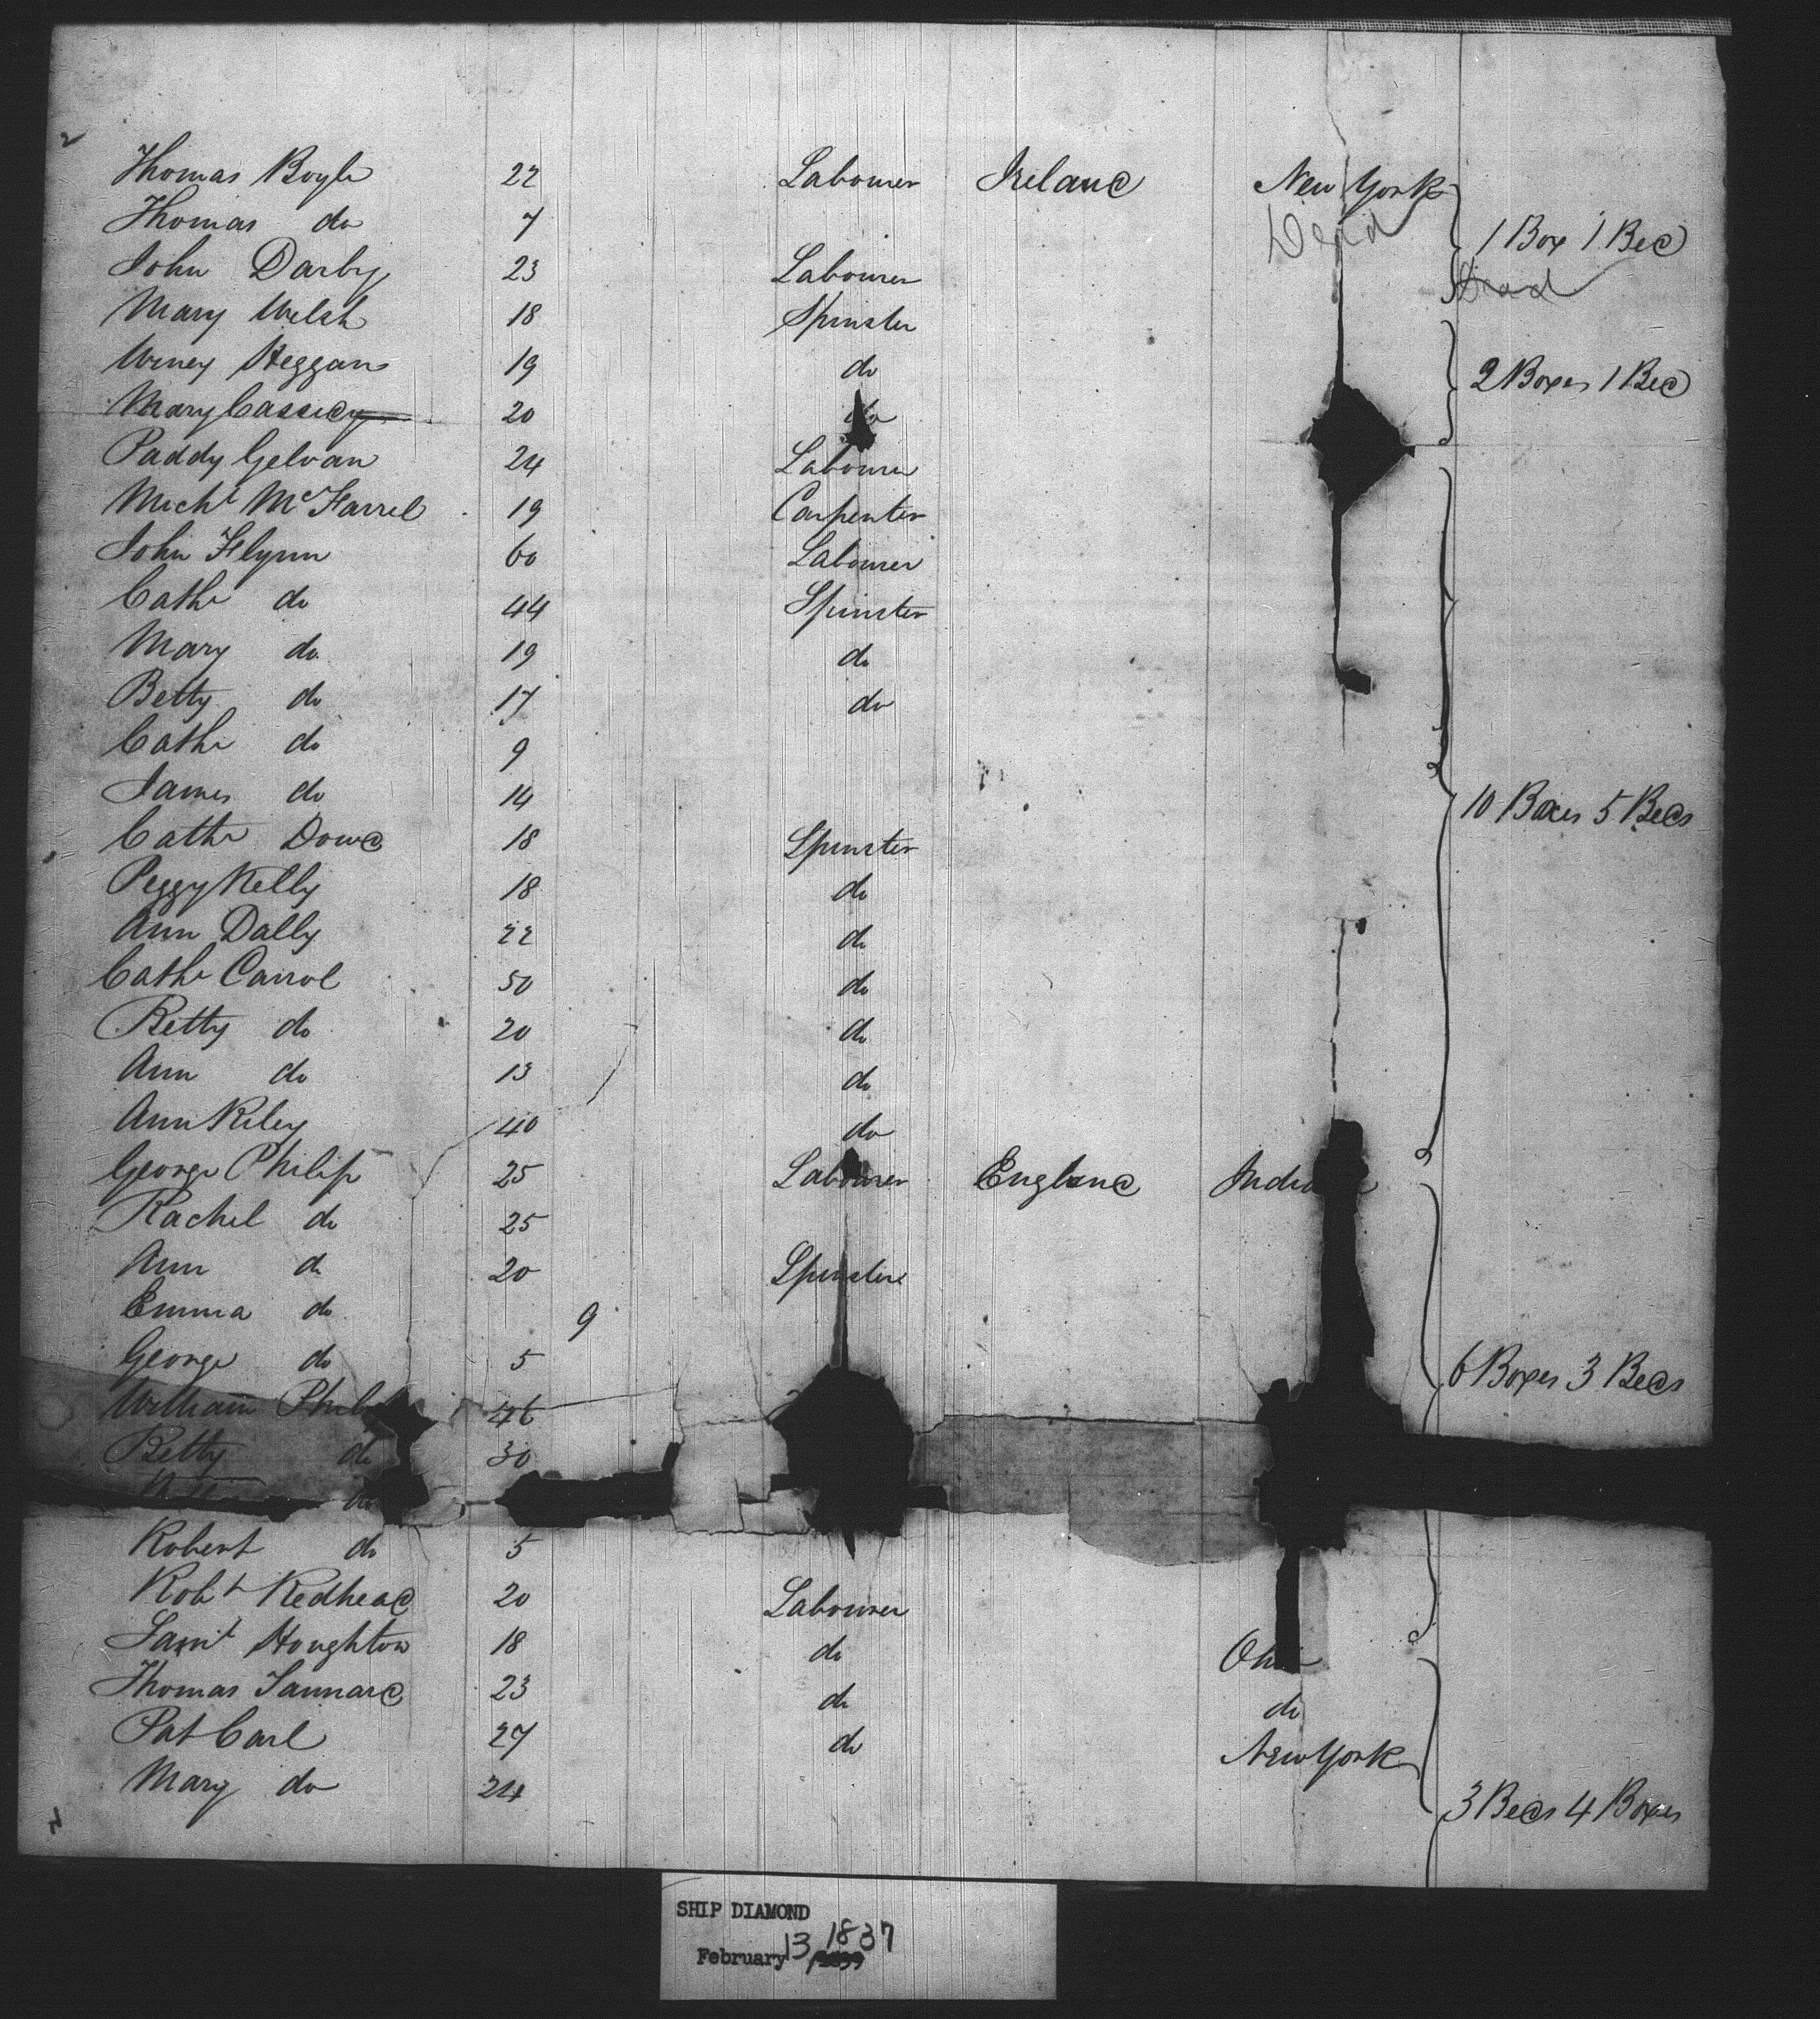 Thomas Boyle 22 Labourer Ireland New York
Thomas do 7 Dead
1 Box 1 Bed
John Darby 23 Labourer
Dead
Mary Welsh 18 Spinster
Winey Heggans 19 do
2 Boxes 1 Bed
Mary Cassidy 20 do
Paddy Gelvan 24 Labourer
Michl McFarrel 19 Carpenter
John Flynn 60 Labourer
Cathe do 44 Spinster
Mary do 19 do
Betty do 17 do
Cathe do 9
James do 14
10 Boxes 5 Beds
Cathe Dowd 18 Spinster
Peggy Kelly 18 do
Ann Dally 22 do
Cathe Carrol 50 do
Betty do 20 do
Ann do 13 do
Ann Riley 40 do
George Philip 25 Labourer England
Rachel do 25
Ann do 20 Spinster
Emma do 9
George do 5
6 Boxes 3 Beds
William 46
Betty do 30
do
Robert do 5
Robt Redhead 20 Labourer
Saml Houghton 18 do Ohio
Thomas Sannard 23 do do
Pat Carl 27 do New York
Mary do 24
3 Beds 4 Boxes
SHIP DIAMOND
February 13 1837